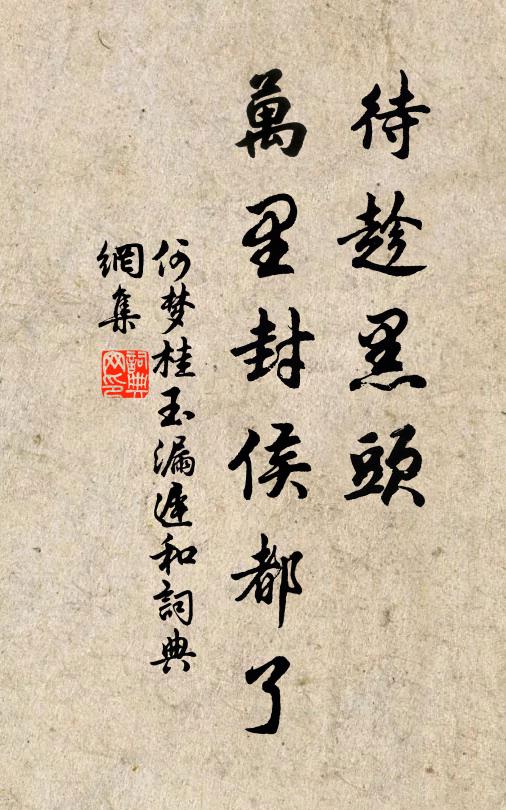 待趁黑頭
萬里封侯都了
何梦桂玉漏遲和詞典
網集
詞典网印